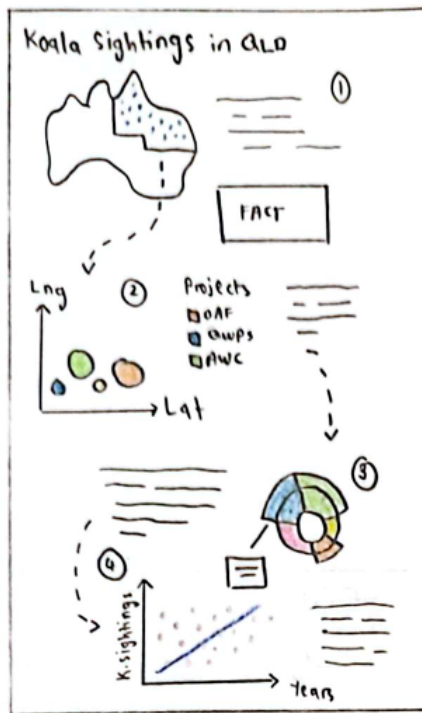 Koala Sightings in QLD
1
FACT
Lng
2
Projects
OAF
QWPS
AWC
Lat
3
4
K.sightings
Years